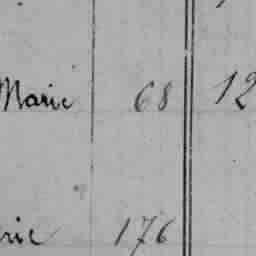 Marie 68 12
rie 176